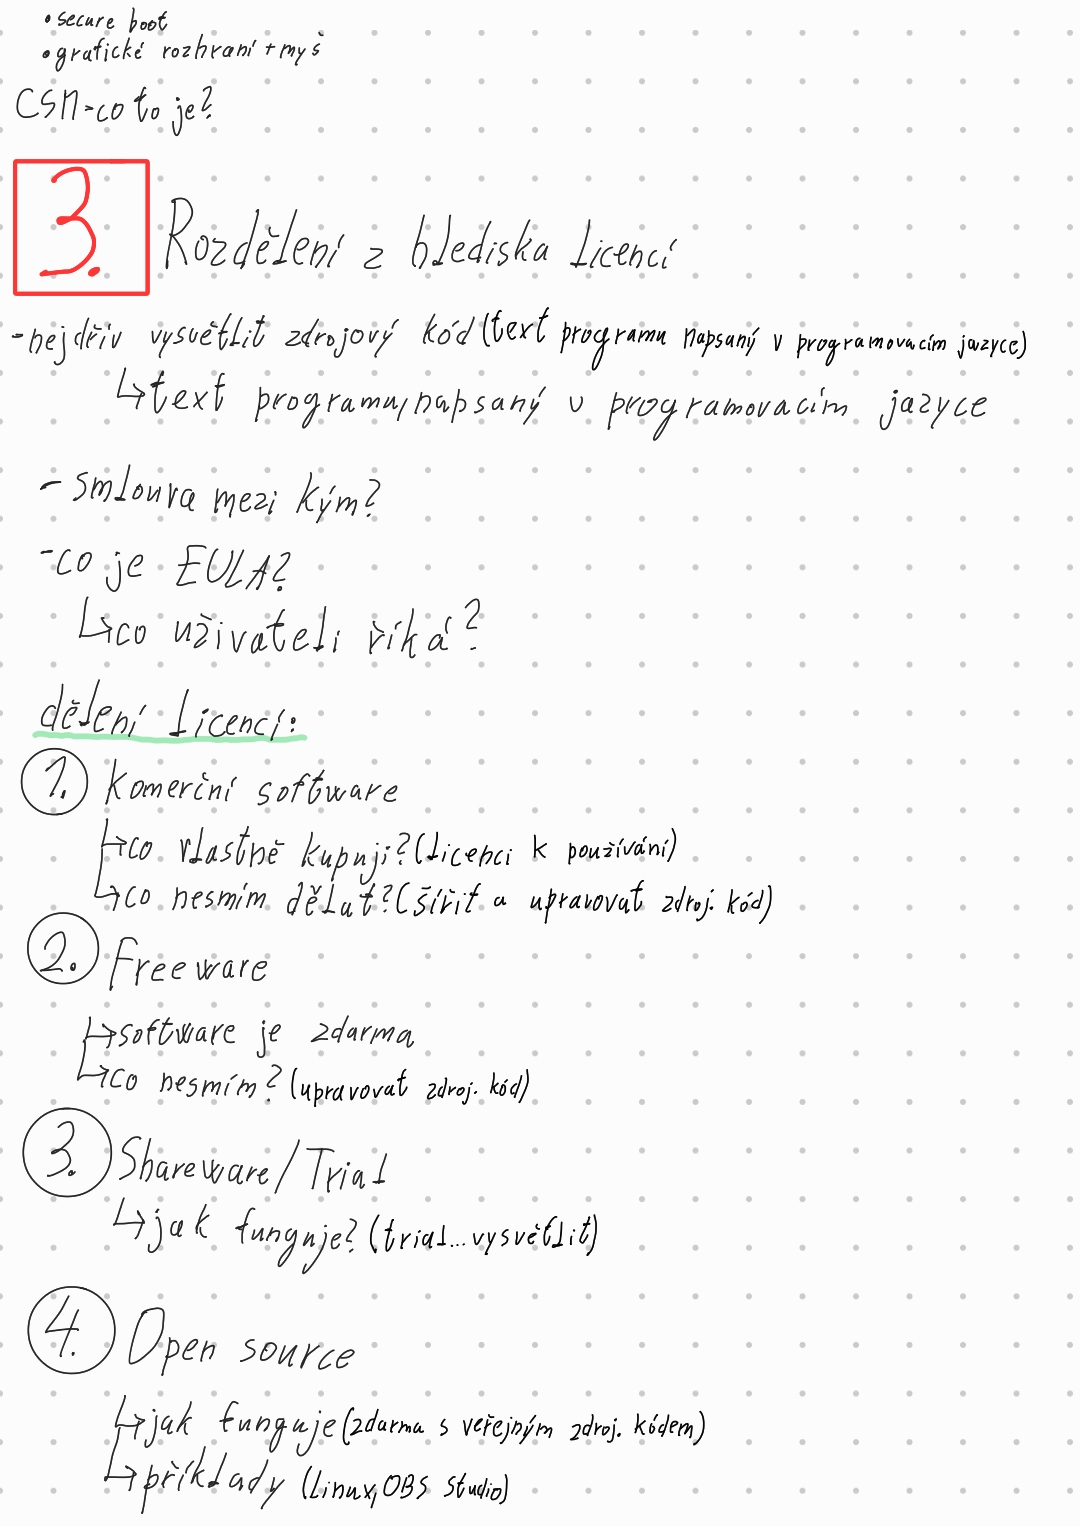 • secure boot
• grafické rozhraní + myš
CSM - co to je?
3. Rozdělení z hlediska licencí
- nejdřív vysvětlit zdrojový kód (text programu napsaný v programovacím jazyce)
↳ text programu, napsaný v programovacím jazyce
- smlouva mezi kým?
- co je EULA?
↳ co uživateli říká?
dělení licencí:
1. Komerční software
↳ co vlastně kupuji? (licenci k používání)
↳ co nesmím dělat? (šířit a upravovat zdroj. kód)
2. Freeware
↳ software je zdarma
↳ co nesmím? (upravovat zdroj. kód)
3. Shareware/Trial
↳ jak funguje? (trial... vysvětlit)
4. Open source
↳ jak funguje (zdarma s veřejným zdroj. kódem)
↳ příklady (Linux, OBS Studio)